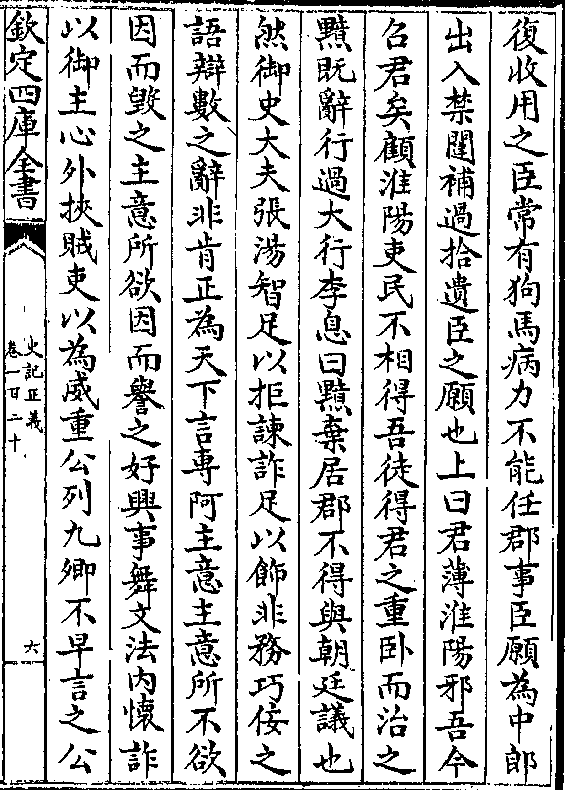 復收用之臣常有狗馬病力不能任郡事臣願為中郎
出入禁闥補過拾遺臣之願也上曰君薄淮陽邪吾今
召君矣顧淮陽吏民不相得吾徒得君之重卧而治之
黯既辭行過大行李息曰黯棄居郡不得與朝廷議也
然御史大夫張湯智足以拒諫詐足以飾非務巧佞之
語辯數之辭非肯正為天下言專阿主意主意所不欲
因而毀之主意所欲因而譽之好興事舞文法内懷詐
以御主心外挾賊吏以為威重公列九卿不早言之公
欽定四庫全書
史記正義
卷一百二十
六